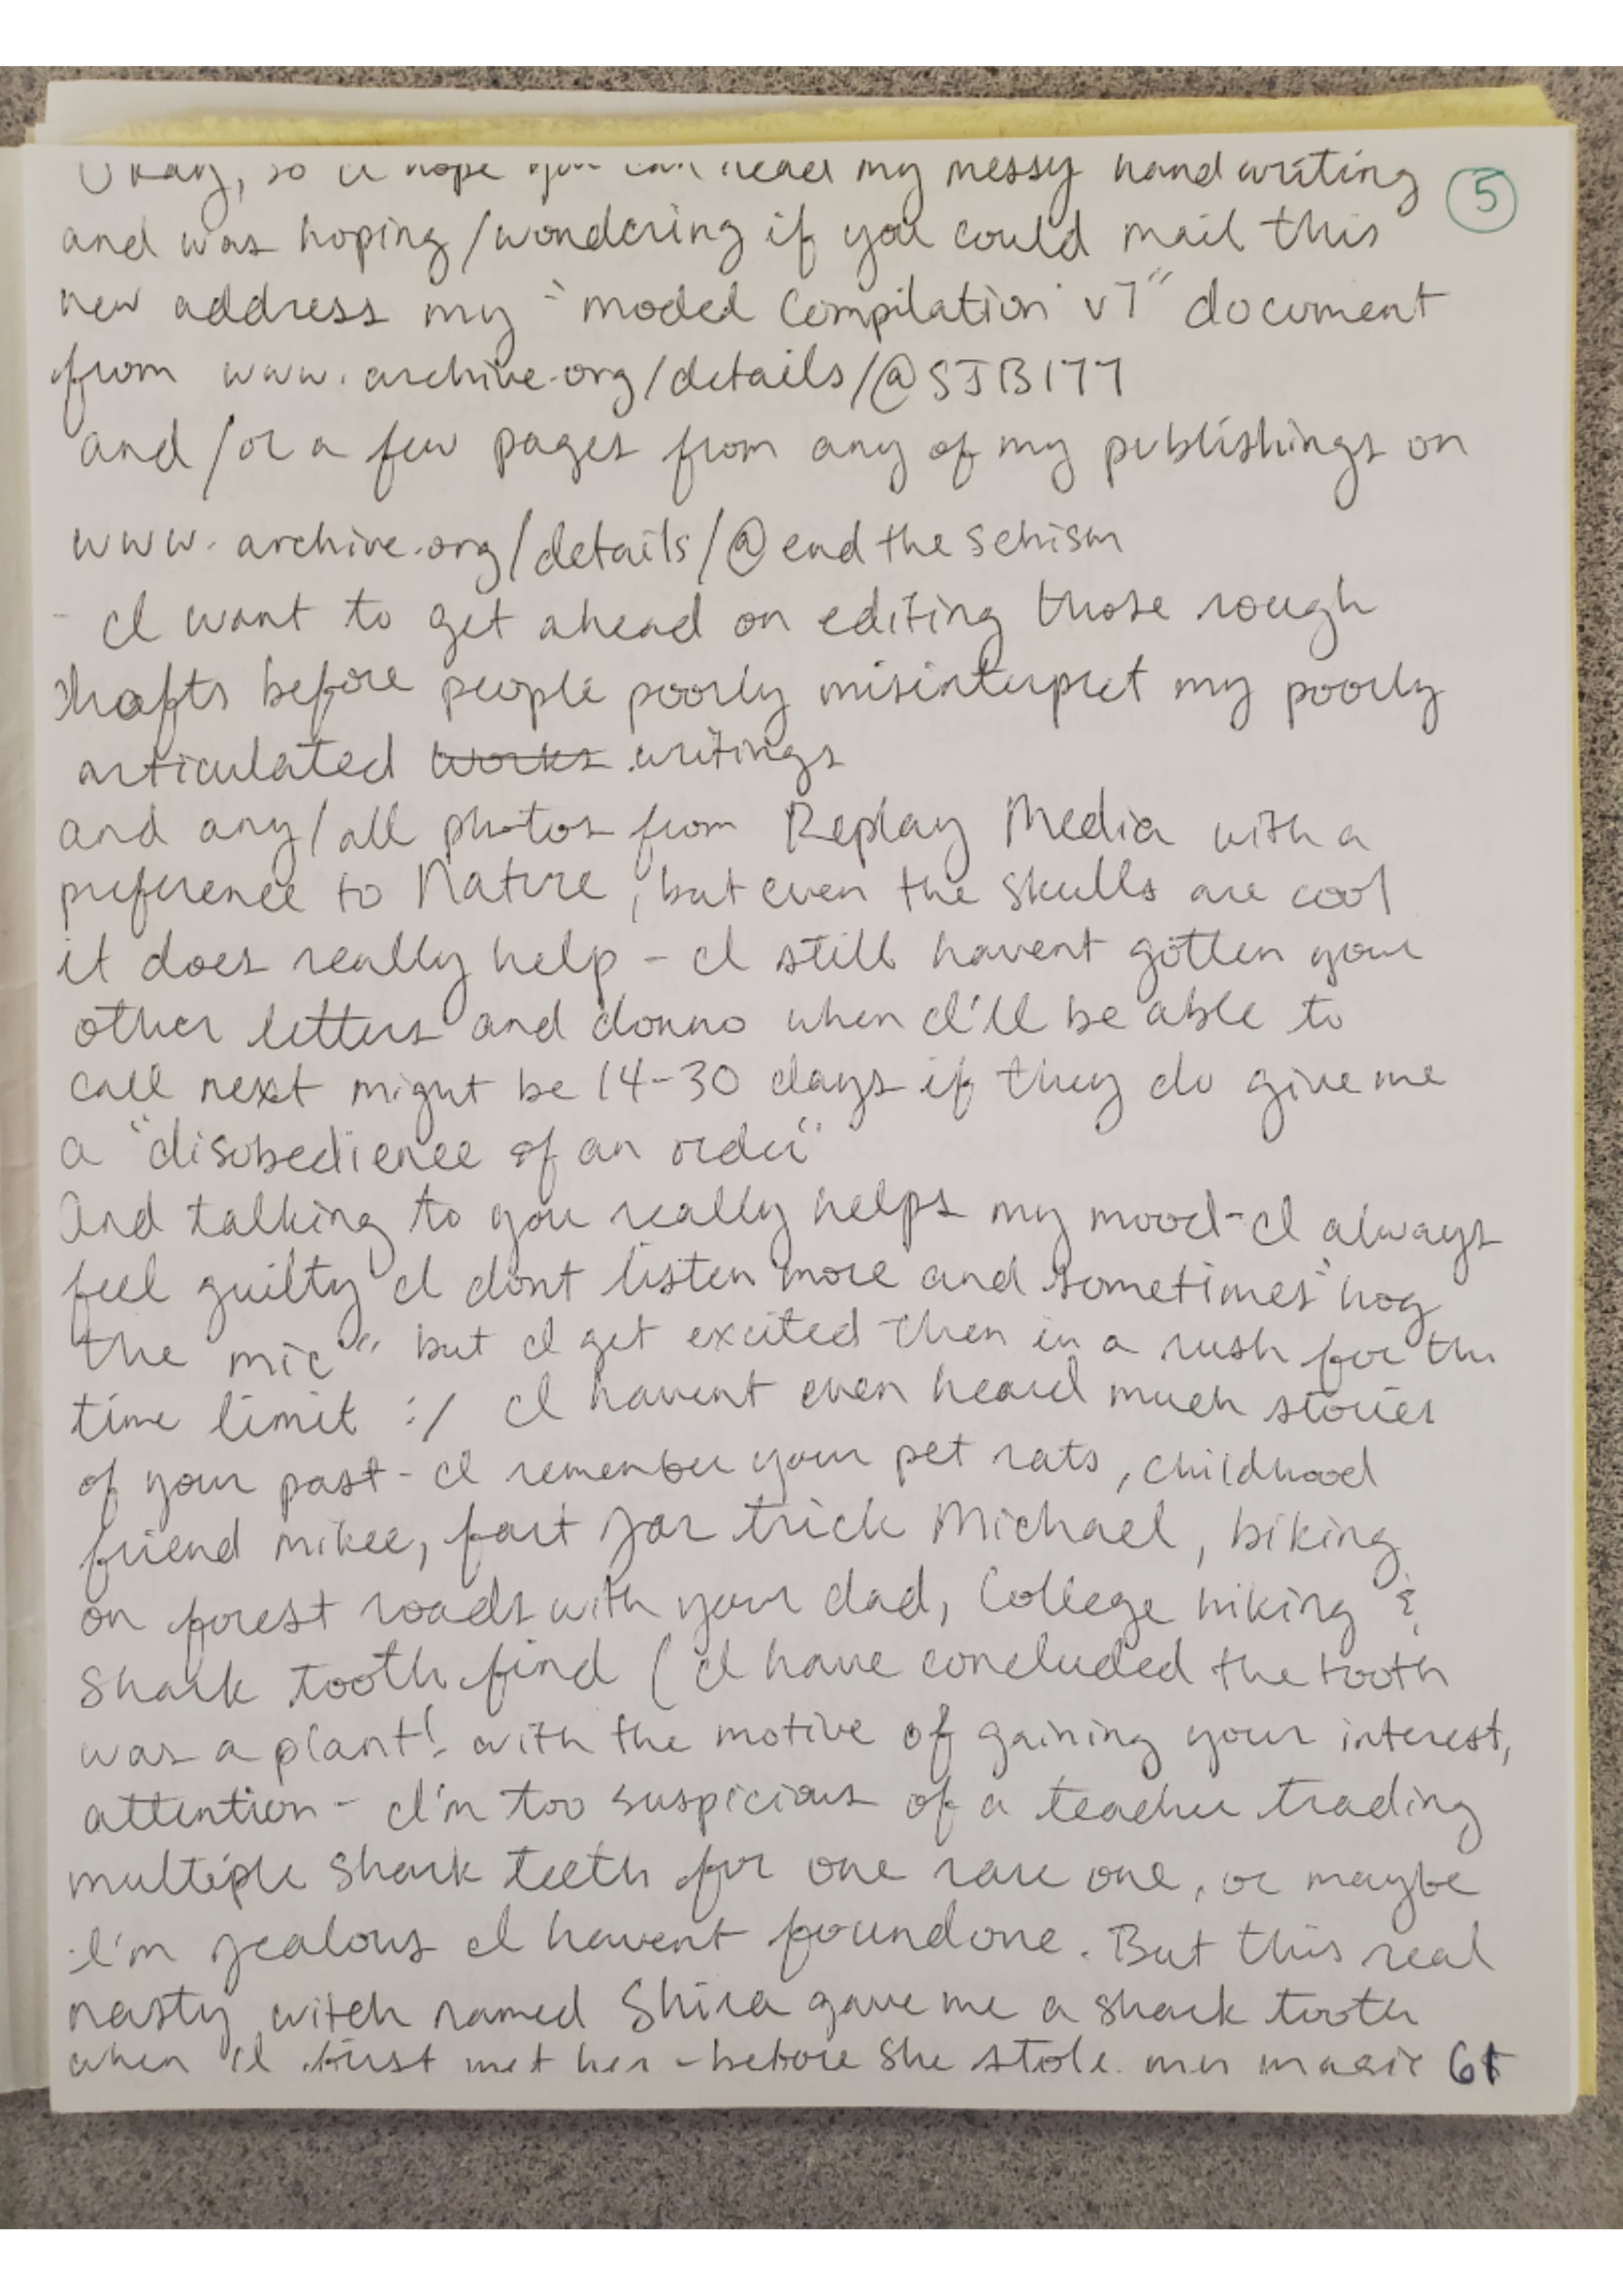 Okay, so I hope you can read my messy handwriting
5
and was hoping/wondering if you could mail this
new address my "moded Compilation v7" document
from www.archive.org/details/@SJB177
and/or a few pages from any of my publishings on
www.archive.org/details/@endtheschism
- I want to get ahead on editing those rough
drafts before people poorly misinterpret my poorly
articulated works writings
and any/all photos from Replay Media with a
preference to Nature, but even the skulls are cool
it does really help - I still havent gotten your
other letters and donno when I'll be able to
call next might be 14-30 days if they do give me
a "disobedience of an order"
And talking to you really helps my mood - I always
feel guilty I dont listen more and sometimes "hog
the mic" but I get excited then in a rush for the
time limit :/ I havent even heard much stories
of your past - I remember your pet rats, childhood
friend mikee, fart jar trick Michael, biking
on forest roads with your dad, College hiking &
Shark tooth find (I have concluded the tooth
was a plant! with the motive of gaining your interest,
attention - I'm too suspicious of a teacher trading
multiple shark teeth for one rare one, or maybe
I'm jealous I havent found one. But this real
nasty witch named Shira gave me a shark tooth
when I first met her - before she stole my magic